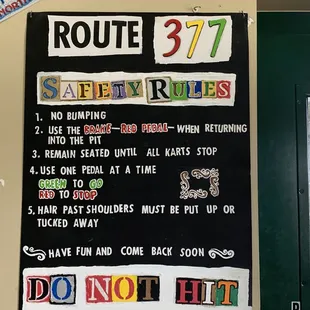 ROUTE 377
SAFETY RULES
1. NO BUMPING
2. USE THE BRAKE—RED PEDAL—WHEN RETURNING
INTO THE PIT
3. REMAIN SEATED UNTIL ALL KARTS STOP
4. USE ONE PEDAL AT A TIME
GREEN TO GO
RED TO STOP
5. HAIR PAST SHOULDERS MUST BE PUT UP OR
TUCKED AWAY
HAVE FUN AND COME BACK SOON
DO NOT HIT